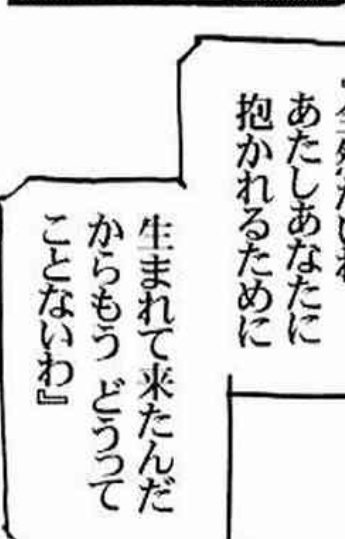 あたしあなたに
抱かれるために
生まれて来たんだ
からもう どうって
ことないわ』